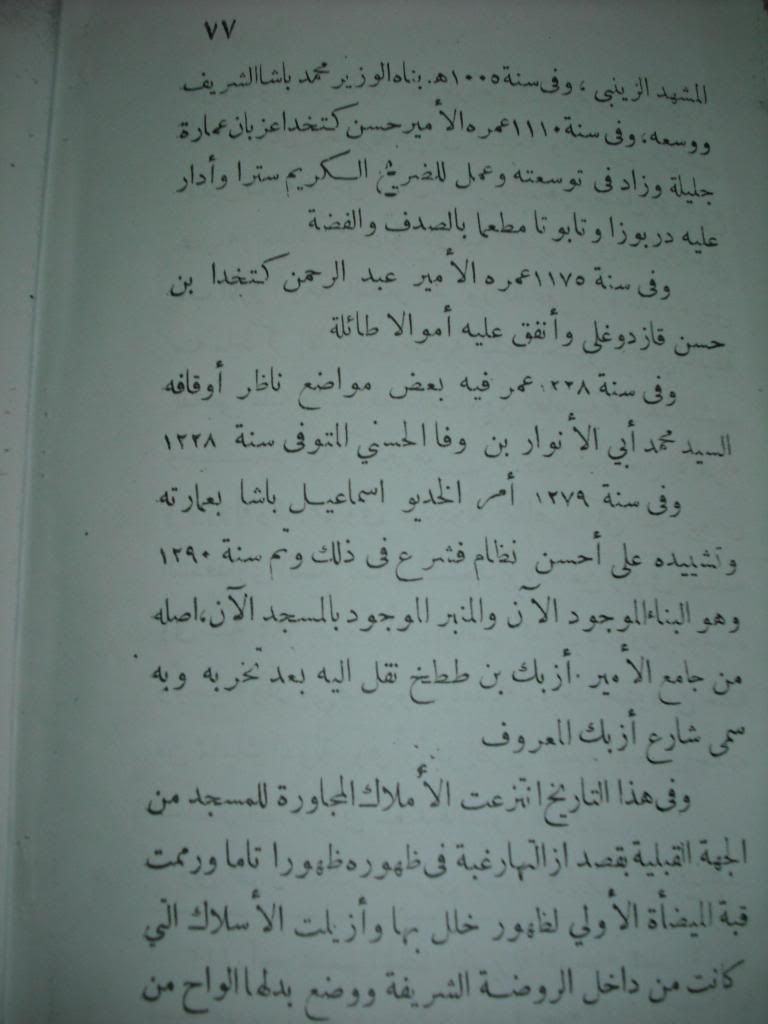 ٧٧
المشهد الزينبى ، وفى سنة ١٠٠٥ هـ. بناه الوزير محمد باشا الشريف
ووسعه، وفى سنة ١١١٠ عمره الأمير حسن كتخدا عزبان عمارة
جليلة وزاد فى توسعته وعمل للضريح الكريم سترا وأدار
عليه دربوزا وتابوتا مطعما بالصدف والفضة
وفى سنة ١١٧٥ عمره الأمير عبد الرحمن كتخدا بن
حسن قازدوغلى وأنفق عليه أموالا طائلة
وفى سنة ١٢٢٨ عمر فيه بعض مواضع ناظر أوقافه
السيد محمد أبي الأنوار بن وفا الحسني المتوفى سنة ١٢٢٨
وفى سنة ١٢٧٩ أمر الخديو اسماعيل باشا بعمارته
وتشييده على أحسن نظام فشرع فى ذلك وتم سنة ١٢٩٠
وهو البناء الموجود الآن والمنبر الموجود بالمسجد الآن، اصله
من جامع الأمير . أزبك بن ططخ نقل اليه بعد تخربه وبه
سمى شارع أزبك المعروف
وفى هذا التاريخ انتزعت الأملاك المجاورة للمسجد من
الجهة القبلية بقصد ازالتها رغبة فى ظهوره ظهورا تاما ورممت
قبة الميضأة الأولي لظهور خلل بها وأزيلت الأسلاك التي
كانت من داخل الروضة الشريفة ووضع بدلها الواح من